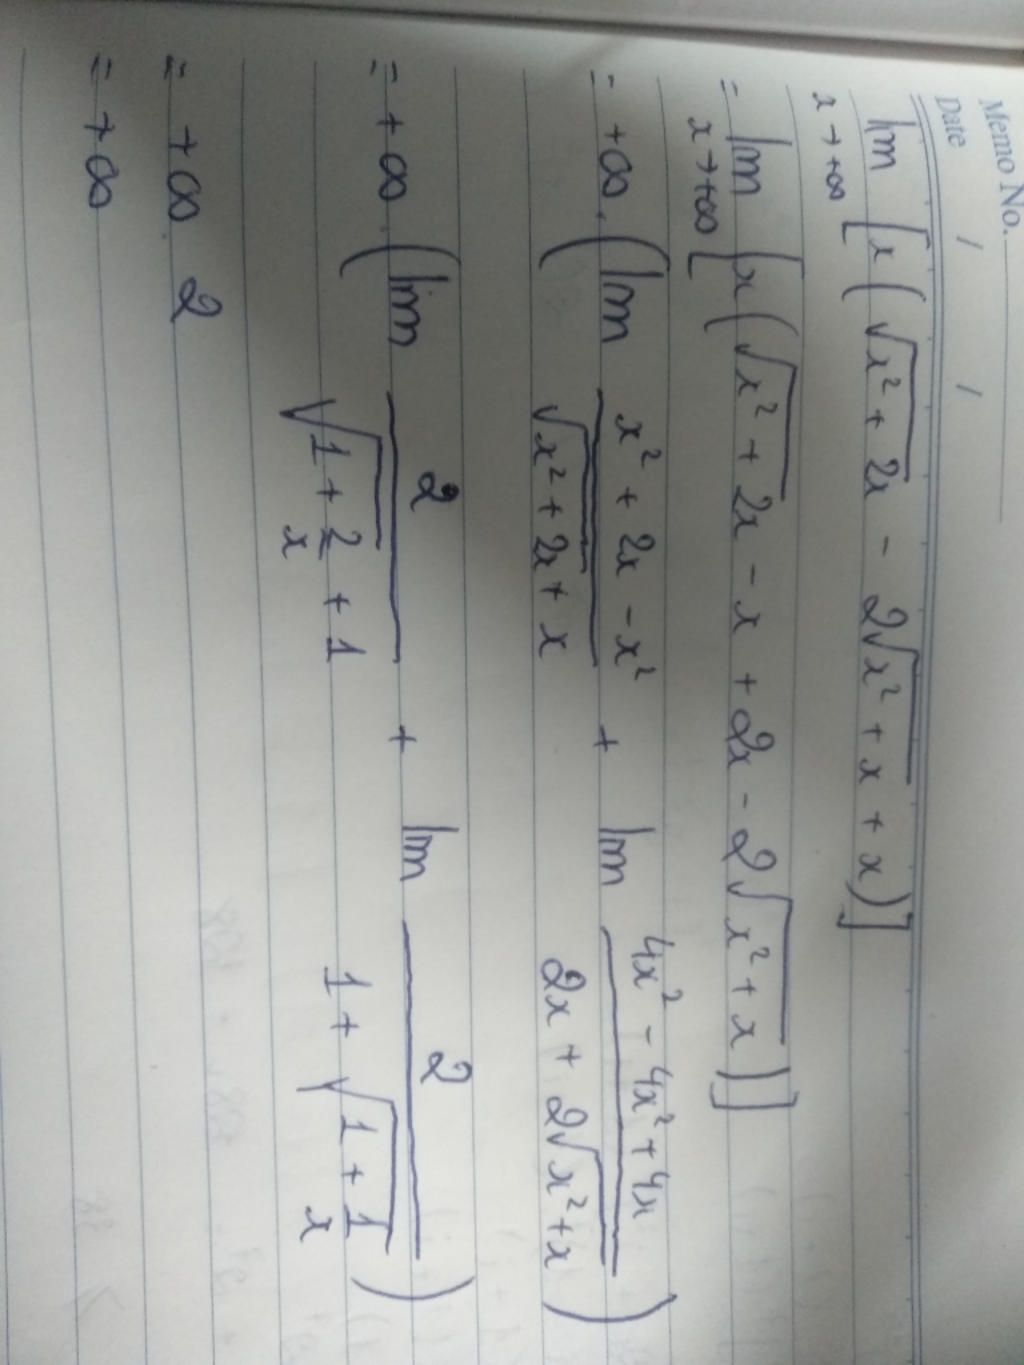 Memo No.
Date / /
lim x→+∞ [x(√(x² + 2x) - 2√(x² + x) + x)]
= lim x→+∞ [x(√(x² + 2x) - x + 2x - 2√(x² + x))]
= +∞. (lim (x² + 2x - x²)/(√(x² + 2x) + x) + lim (4x² - 4x² + 4x)/(2x + 2√(x² + x)))
= +∞. (lim 2/(√(1 + 2/x) + 1) + lim 2/(1 + √(1 + 1/x)))
= +∞. 2
= +∞